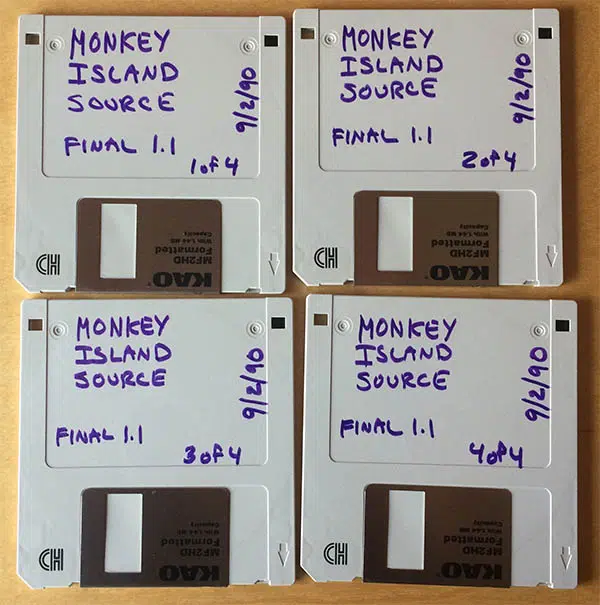 MONKEY
ISLAND
SOURCE
9/2/90
FINAL 1.1
1 of 4
HD
KAO
MF2HD
Formatted
With 1.44 MB
Capacity
MONKEY
ISLAND
SOURCE
9/2/90
FINAL 1.1
2 of 4
HD
KAO
MF2HD
Formatted
With 1.44 MB
Capacity
MONKEY
ISLAND
SOURCE
9/2/90
FINAL 1.1
3 of 4
HD
KAO
MF2HD
Formatted
With 1.44 MB
Capacity
MONKEY
ISLAND
SOURCE
9/2/90
FINAL 1.1
4 of 4
HD
KAO
MF2HD
Formatted
With 1.44 MB
Capacity